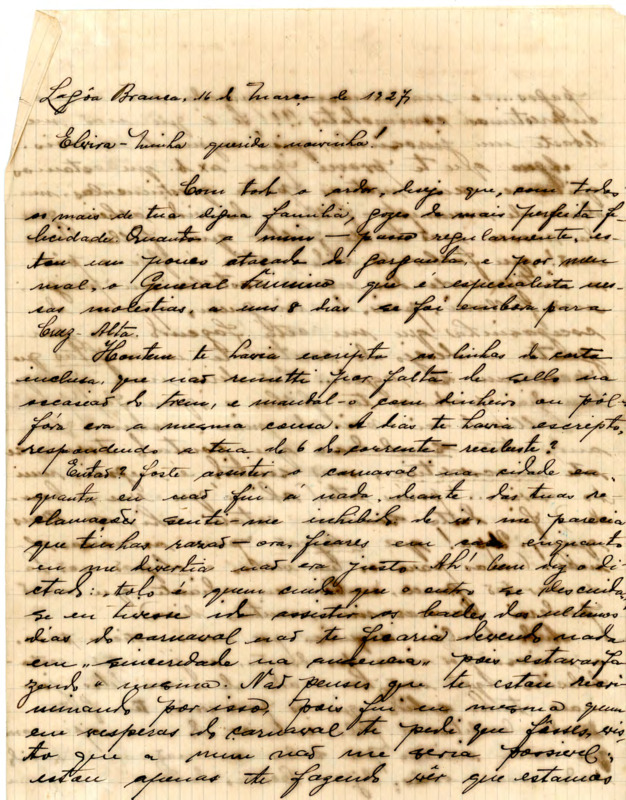 Lagôa Branca, 16 de Março de 1927,
Elvira - Minha querida noivinha!
Com todo o ardor, desejo que, com todos
os mais de tua digna familia, gozes da mais perfeita fe-
licidade. Quanto a mim - passo regularmente, es-
tou um pouco atacado da garganta, e por meu
mal, o General Firmino que é especialista nes-
sas molestias, a uns 8 dias se foi embora para
Cruz-Alta.
Hontem te havia escripto as linhas da carta
inclusa, que não remetti por falta de sello na
occasião do trem, e mandal-o com dinheiro ou pól-
fóra era a mesma cousa. A dias te havia escripto,
respondendo a tua de 6 do corrente - recebeste?
Então? foste assistir o carnaval na cidade en-
quanto eu não fui á nada, deante das tuas re-
clamações senti-me inhibido de ir, me parecia
que tinhas razão - ora, ficares em casa enquanto
eu me divertia não era justo. Ah! bem diz o di-
ctado: tolo é quem cuida que o outro se descuida,
se eu tivesse ido assistir os bailes dos ultimos
dias do carnaval não te ficaria devendo nada
em "sinceridade na ausencia" pois estavas fa-
zendo o mesmo. Não penses que te estou recri-
minando por isso, pois fui eu mesmo quem
em vesperas do carnaval te pedi que fosses, vis-
to que a mim não me seria possivel -
estou apenas te fazendo vêr que estamos